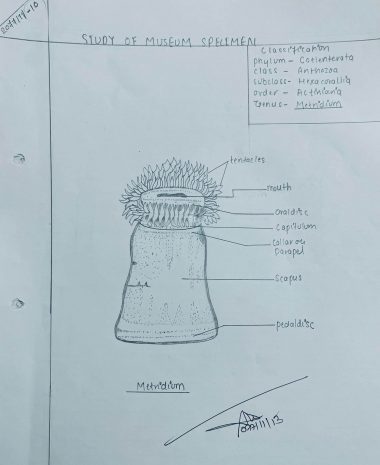 STUDY OF MUSEUM SPECIMEN
Classification
phylum - Coelenterata
class - Anthozoa
subclass - Hexacorallia
order - Actiniaria
Genus - Metridium
tentacles
mouth
oraldisc
Capitulum
Collar or
Parapet
Scapus
pedaldisc
Metridium